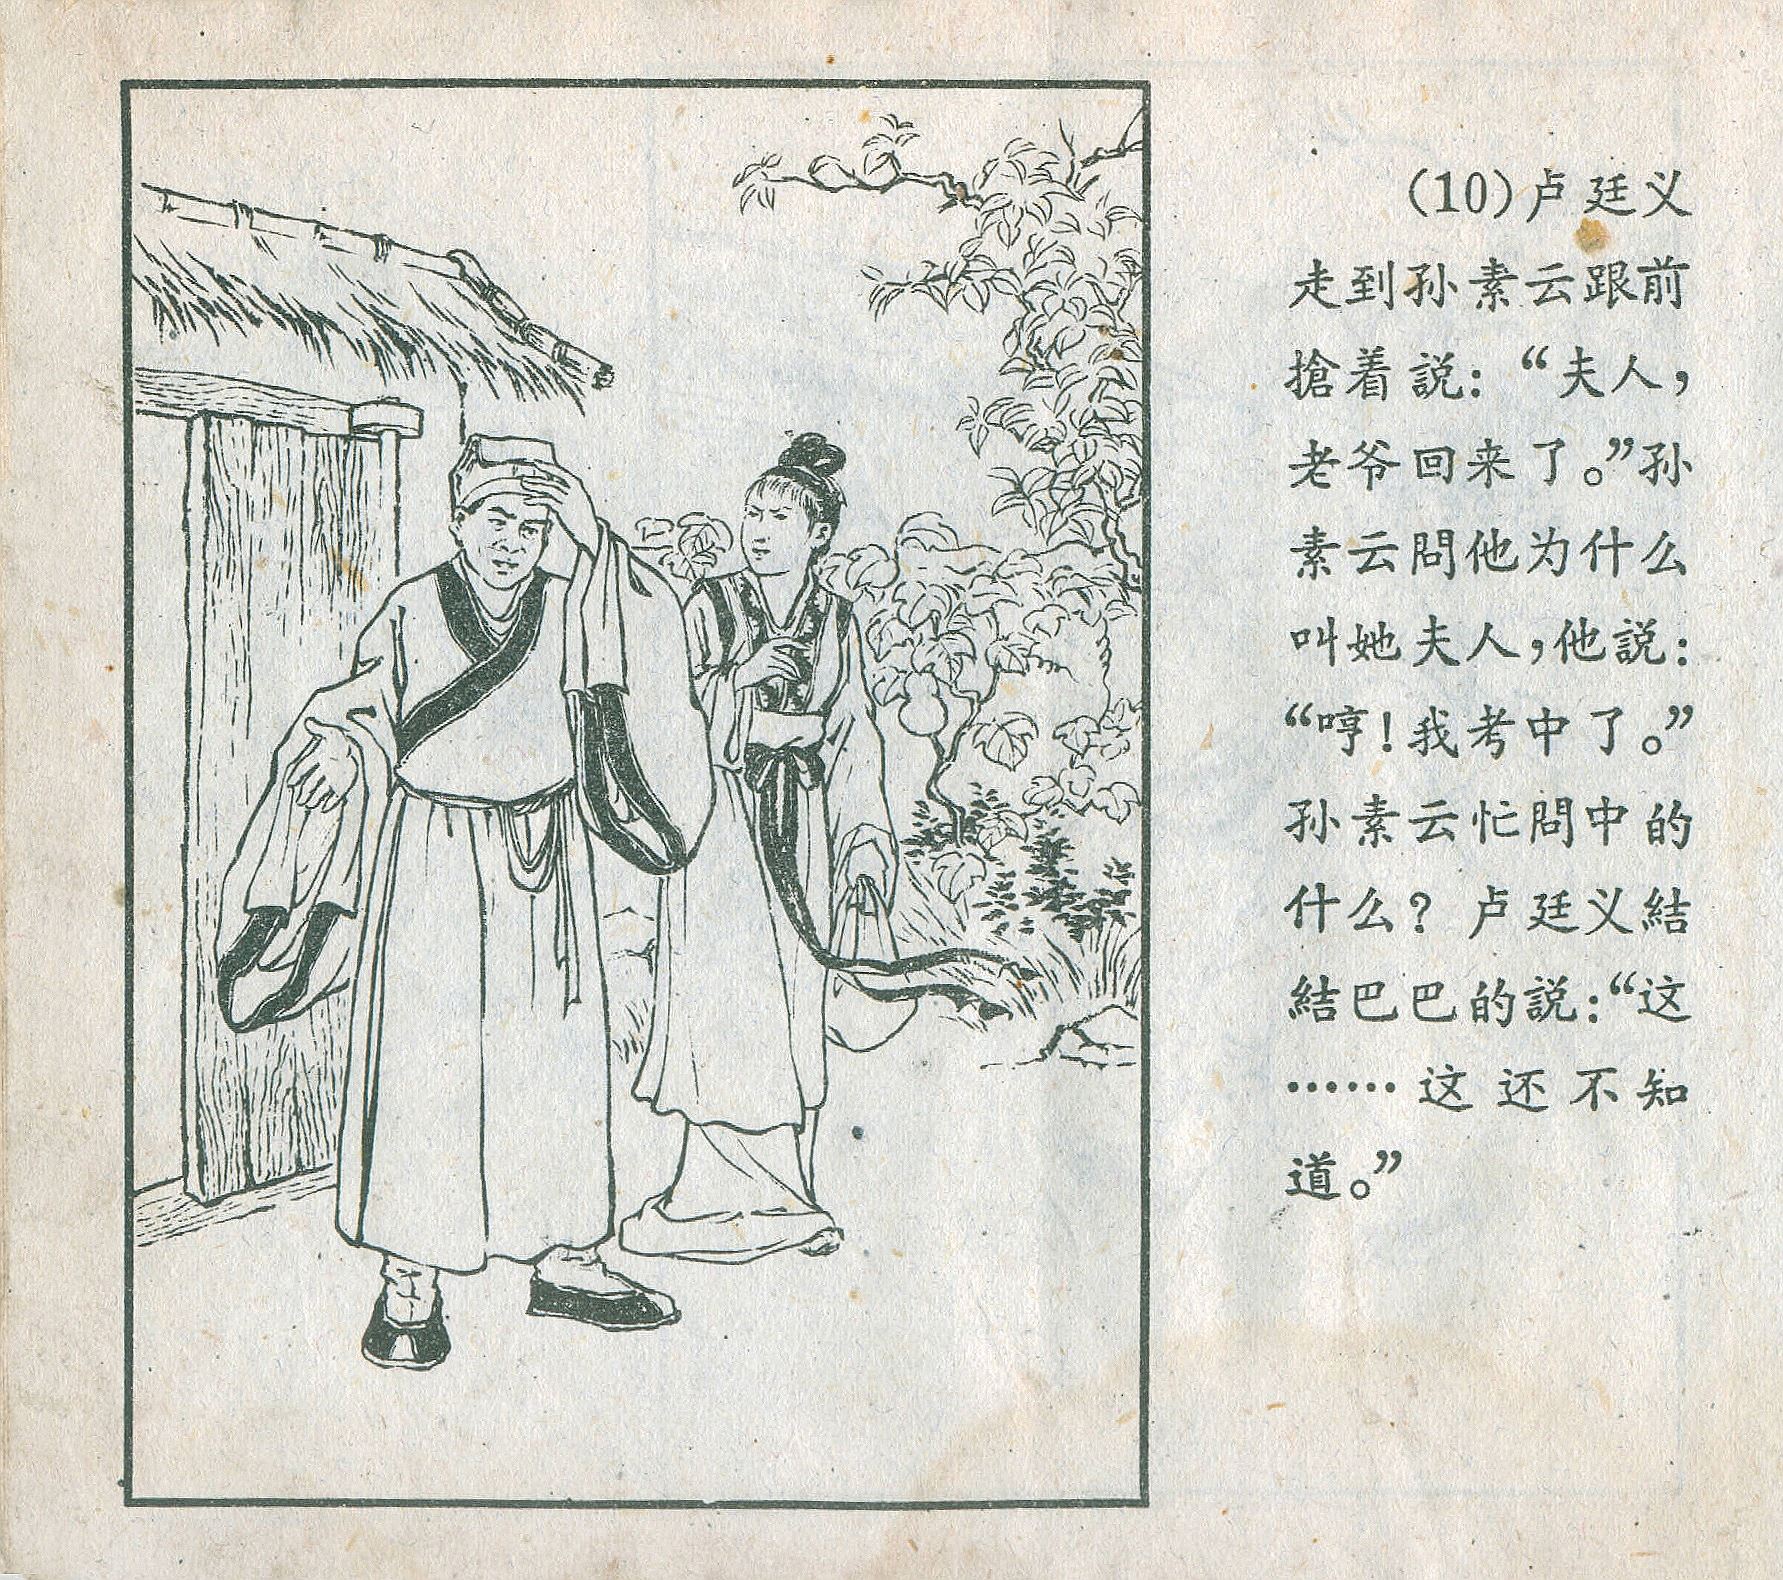 (10)卢廷义
走到孙素云跟前
搶着説：“夫人，
老爷回来了。”孙
素云問他为什么
叫她夫人，他説：
“哼！我考中了。”
孙素云忙問中的
什么？卢廷义結
結巴巴的説：“这
……这还不知
道。”